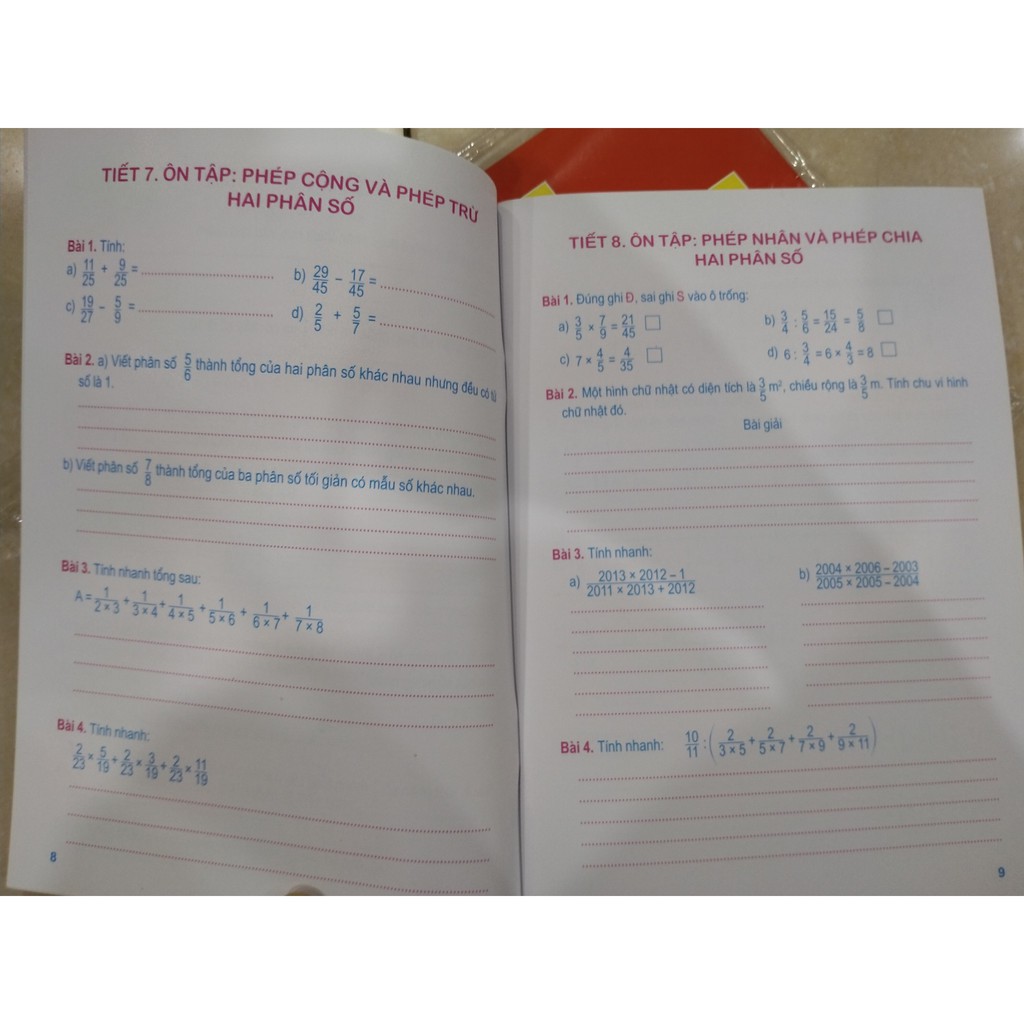 TIẾT 7. ÔN TẬP: PHÉP CỘNG VÀ PHÉP TRỪ
HAI PHÂN SỐ
Bài 1. Tính:
a) 11/25 + 9/25 = ........ b) 29/45 – 17/45 = ........
c) 19/27 – 5/9 = ........ d) 2/5 + 5/7 = ........
Bài 2. a) Viết phân số 5/6 thành tổng của hai phân số khác nhau nhưng đều có tử
số là 1.
b) Viết phân số 7/8 thành tổng của ba phân số tối giản có mẫu số khác nhau.
Bài 3. Tính nhanh tổng sau:
A = 1/(2 × 3) + 1/(3 × 4) + 1/(4 × 5) + 1/(5 × 6) + 1/(6 × 7) + 1/(7 × 8)
Bài 4. Tính nhanh:
2/23 × 5/19 + 2/23 × 3/19 + 2/23 × 11/19
8
TIẾT 8. ÔN TẬP: PHÉP NHÂN VÀ PHÉP CHIA
HAI PHÂN SỐ
Bài 1. Đúng ghi Đ, sai ghi S vào ô trống:
a) 3/5 × 7/9 = 21/45 □ b) 3/4 : 5/6 = 15/24 = 5/8 □
c) 7 × 4/5 = 4/35 □ d) 6 : 3/4 = 6 × 4/3 = 8 □
Bài 2. Một hình chữ nhật có diện tích là 3/5 m², chiều rộng là 3/5 m. Tính chu vi hình
chữ nhật đó.
Bài giải
Bài 3. Tính nhanh:
a) (2013 × 2012 – 1)/(2011 × 2013 + 2012) b) (2004 × 2006 – 2003)/(2005 × 2005 – 2004)
Bài 4. Tính nhanh: 10/11 : (2/(3 × 5) + 2/(5 × 7) + 2/(7 × 9) + 2/(9 × 11))
9